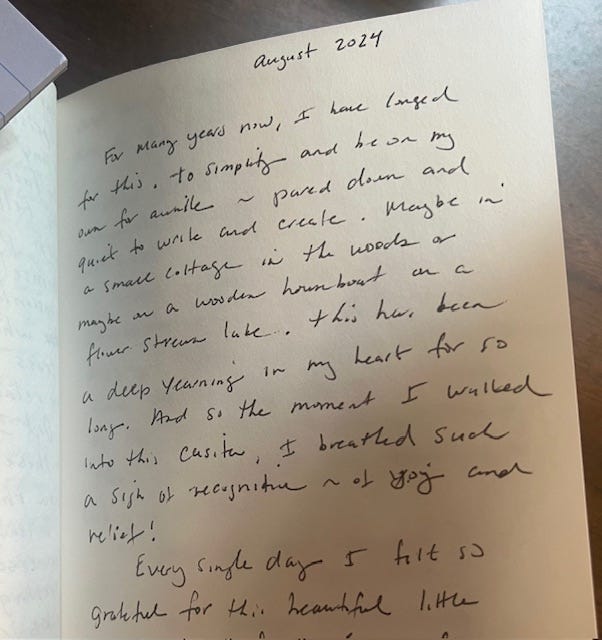 August 2024
For many years now, I have longed
for this. To simplify and be on my
own for awhile ~ pared down and
quiet to write and create. Maybe in
a small cottage in the woods or
maybe on a wooden houseboat on a
flower strewn lake. This has been
a deep yearning in my heart for so
long. And so the moment I walked
into this casita, I breathed such
a sigh of recognition ~ of joy and
relief!
Every single day I felt so
grateful for this beautiful little